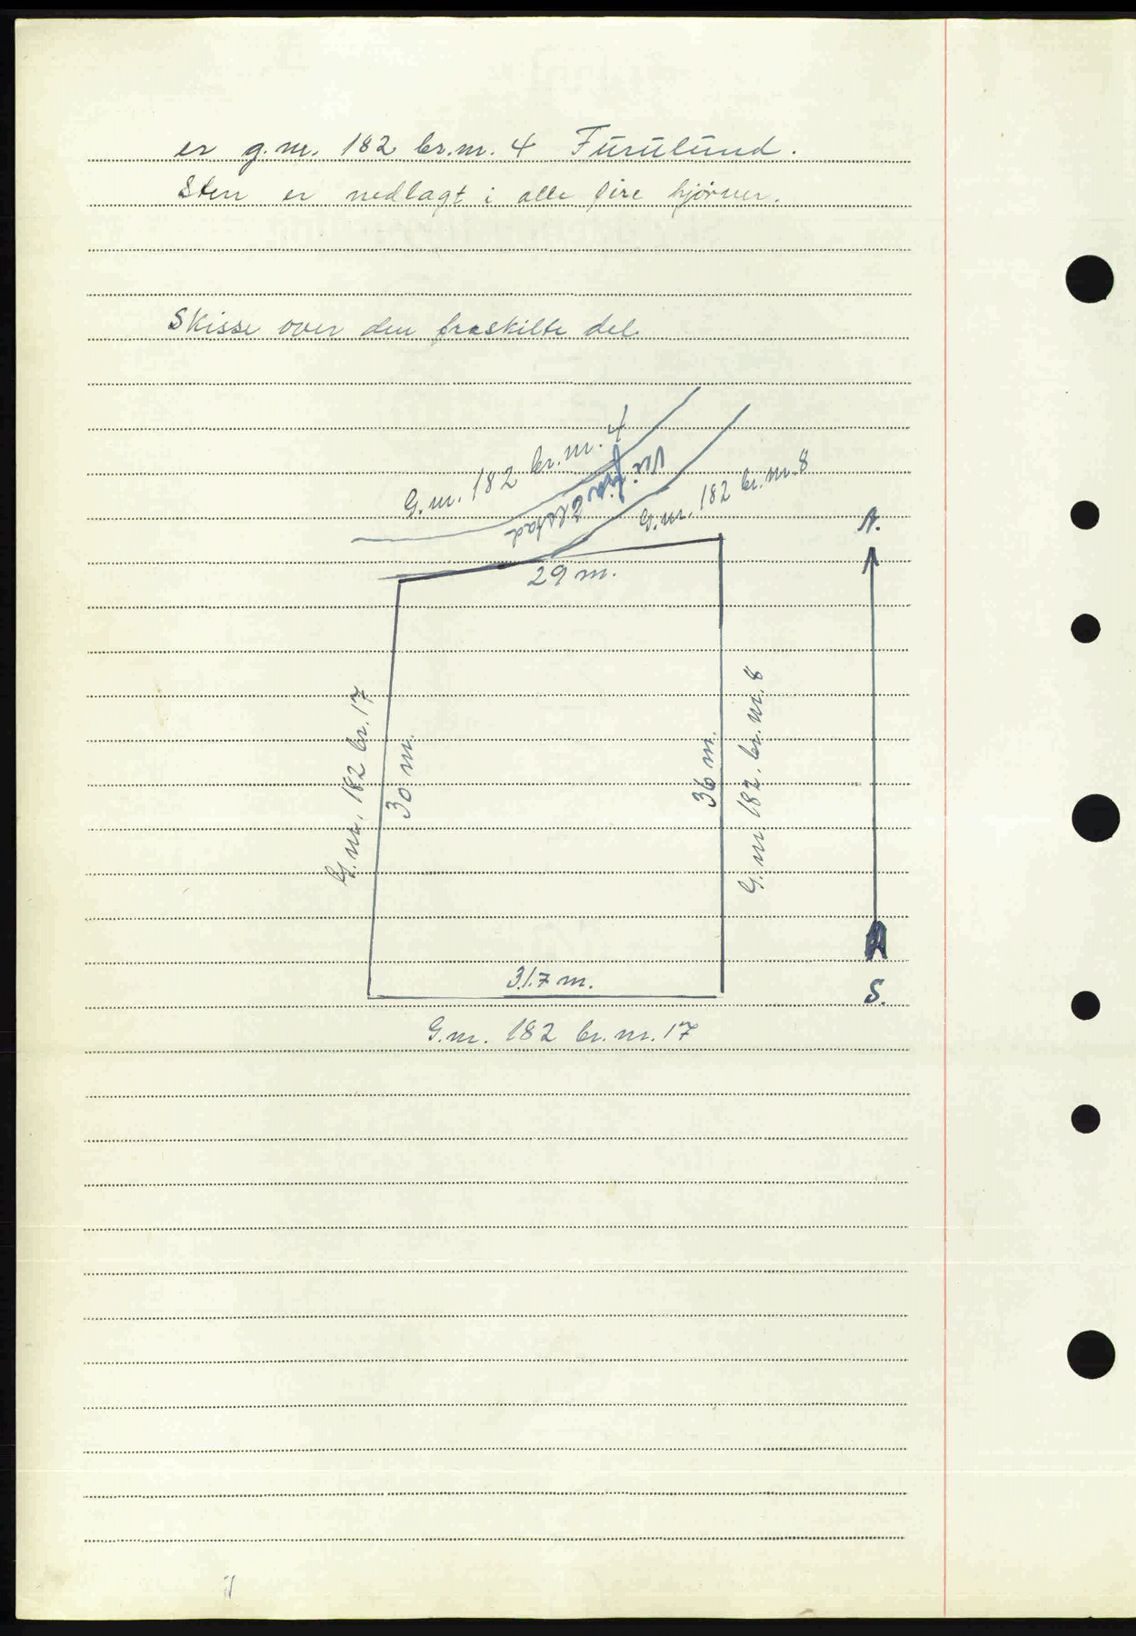 er g.nr. 182 br.nr. 4 Furulund.
Sten er nedlagt i alle fire hjörner.
Skisse over den fraskilte del.
G.nr. 182 br.nr. 4
Vei fra Elstad
G.nr. 182 br.nr. 8
N.
29 m.
G.nr. 182 br. 17
30 m.
36 m.
G.nr. 182. br. nr. 8
31.7 m.
S.
G.nr. 182 br.nr. 17